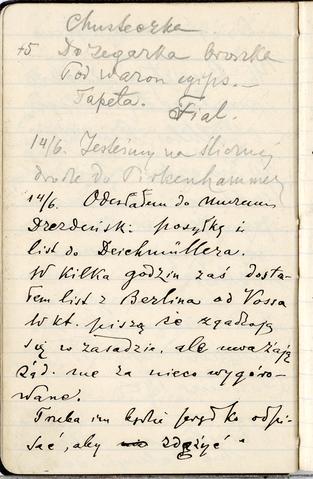 Chusteczka
+5 Do zegarka broszka
Pod wazon egips.
Tapeta. Fial.
14/6. Jesteśmy na ślicznej
drodze do Pirkenhammer
14/6. Odesłałem do muzeum
Drezdeńsk: posyłkę i
list do Deichmüllera.
W kilka godzin zaś dosta-
łem list z Berlina od Vossa
w kt. piszą że zgadzają
się w zasadzie, ale uważają
żąd. me za nieco wygóro-
wane.
Trzeba im będzie prędko odpi-
sać, aby zdążyć